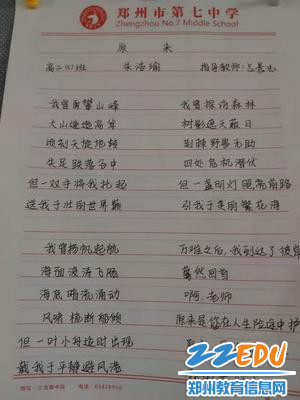 郑州市第七中学
Zhengzhou No.7 Middle School
原来
高二(1)班 朱浩瑜 指导教师:
我曾勇攀山峰 我曾探访森林
大山连绵高耸 树影遮天蔽日
顷刻天旋地转 荆棘野兽无助
失足跌落谷中 四处危机潜伏
但一双手将我托起 但一盏明灯照亮前路
送我于壮丽世界巅 引我于美丽繁花海
我曾扬帆起航 万难之后,我到达了彼岸
海面波涛飞腾 蓦然回首
海底暗流涌动 啊,老师
风啸桅断船倾 原来是您在人生险途中护
但一叶小舟适时出现
载我于平静避风港
22EDU
郑州教育信息网